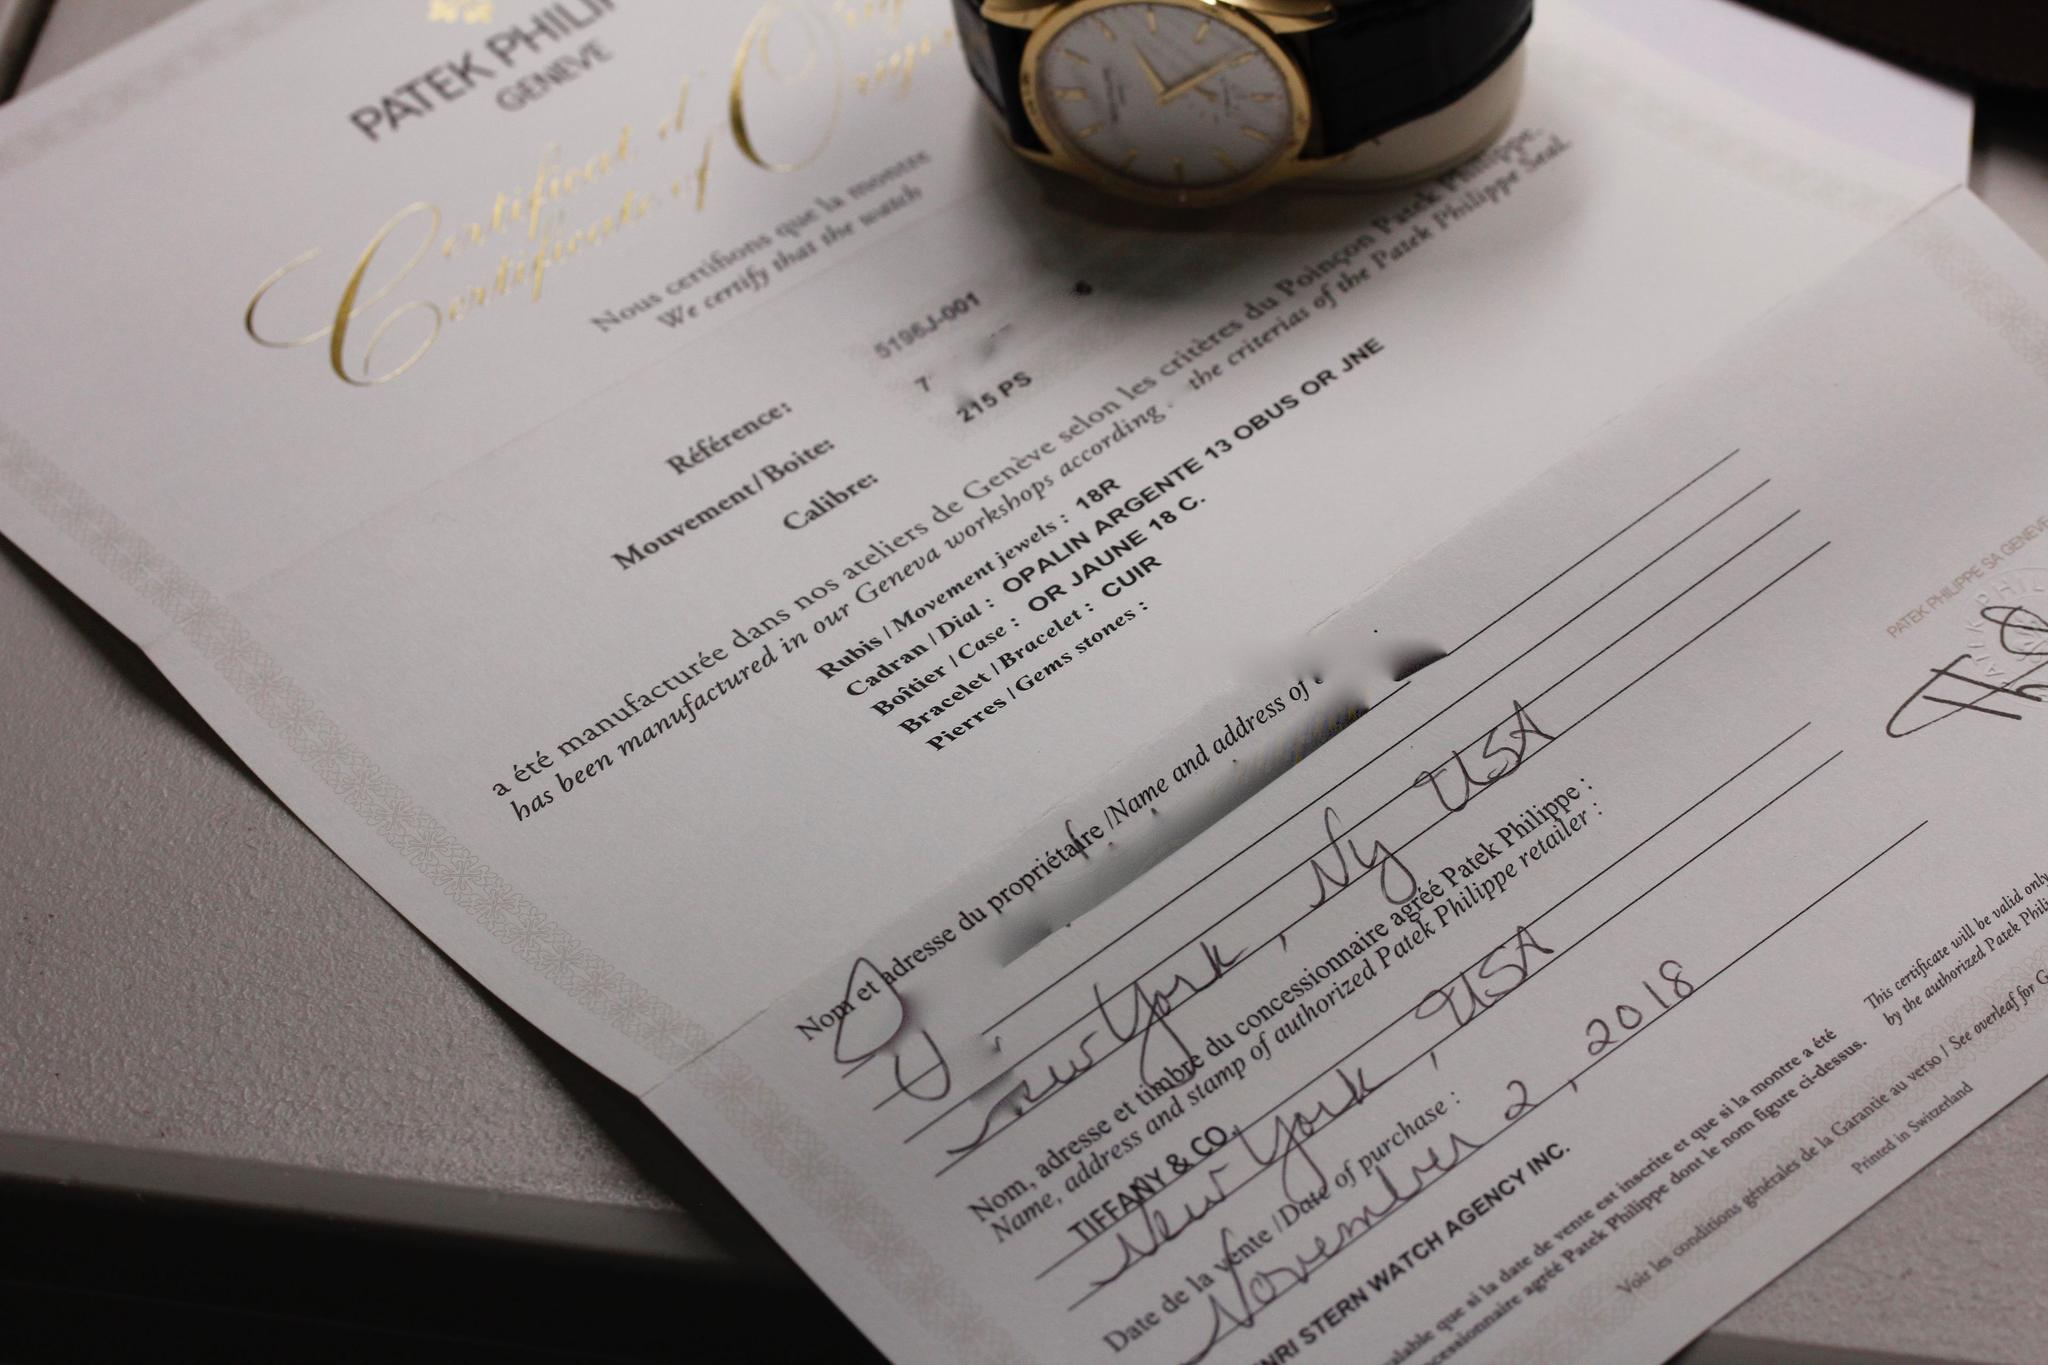 PATEK PHILIP
GENEVE
Certificat d'Orig
Certificate of Origin
Nous certifions que la montre
We certify that the watch
Référence: 5196J-001
Mouvement/Boite: 7
Calibre: 215 PS
a été manufacturée dans nos ateliers de Genève selon les critères du Poinçon Patek Philippe.
has been manufactured in our Geneva workshops according the criterias of the Patek Philippe Seal.
Rubis / Movement jewels : 18R
Cadran / Dial : OPALIN ARGENTE 13 OBUS OR JNE
Boîtier / Case : OR JAUNE 18 C.
Bracelet / Bracelet : CUIR
Pierres / Gems stones :
Nom et adresse du propriétaire /Name and address of
New York, Ny USA
Nom, adresse et timbre du concessionnaire agréé Patek Philippe :
Name, address and stamp of authorized Patek Philippe retailer :
TIFFANY & CO.
New York, USA
Date de la vente /Date of purchase :
November 2, 2018
NRI STERN WATCH AGENCY INC.
alable que si la date de vente est inscrite et que si la montre a été
cessionnaire agréé Patek Philippe dont le nom figure ci-dessus.
This certificate will be valid only
by the authorized Patek Phili
Voir les conditions générales de la Garantie au verso / See overleaf for G
Printed in Switzerland
PATEK PHILIPPE SA GENEVE